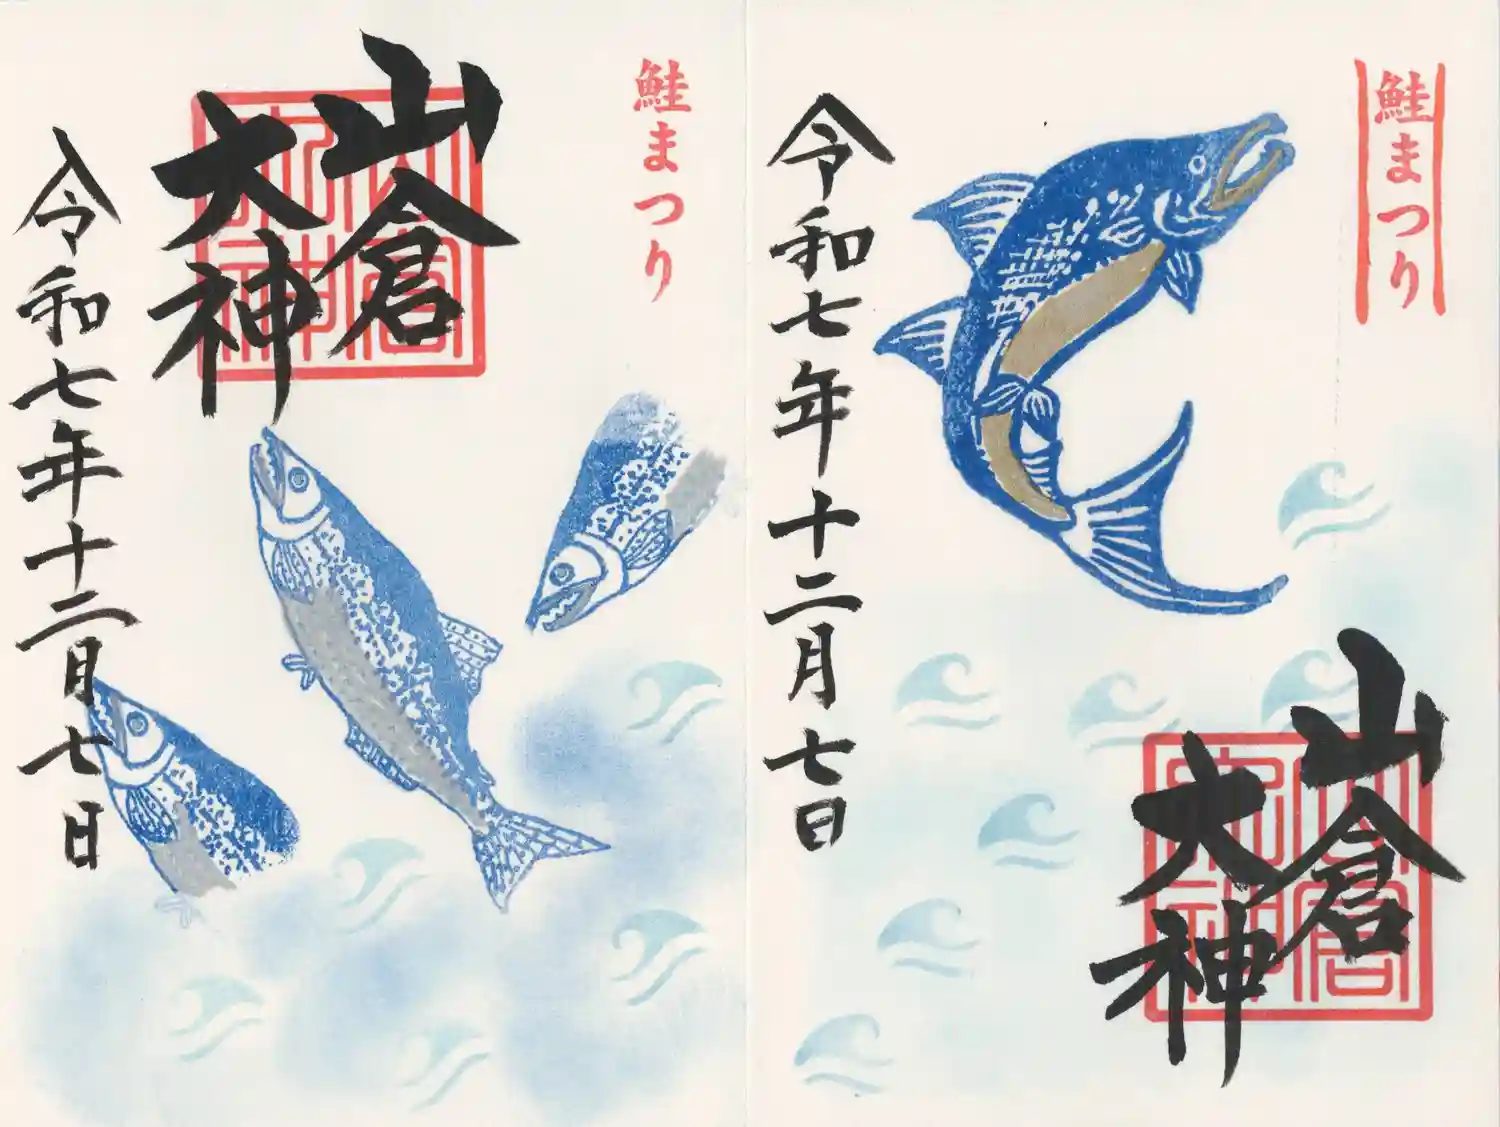 鮭まつり
山倉
大神
令和七年十二月七日
鮭まつり
山倉
大神
令和七年十二月七日
山倉
大神
山倉
大神